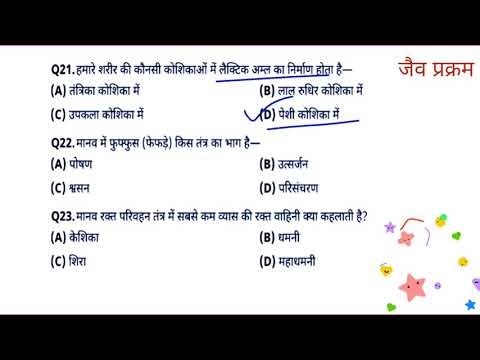 जैव प्रक्रम
Q21. हमारे शरीर की कौनसी कोशिकाओं में लैक्टिक अम्ल का निर्माण होता है—
(A) तंत्रिका कोशिका में (B) लाल रुधिर कोशिका में
(C) उपकला कोशिका में (D) पेशी कोशिका में
Q22. मानव में फुफ्फुस (फेफड़े) किस तंत्र का भाग है—
(A) पोषण (B) उत्सर्जन
(C) श्वसन (D) परिसंचरण
Q23. मानव रक्त परिवहन तंत्र में सबसे कम व्यास की रक्त वाहिनी क्या कहलाती है?
(A) केशिका (B) धमनी
(C) शिरा (D) महाधमनी